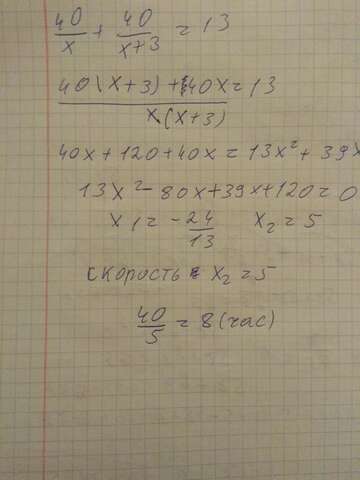 40/x + 40/x+3 = 13
40(x+3) + 40x = 13
x(x+3)
40x+120+40x = 13x²+39x
13x²-80x+39x+120=0
x1 = -24/13 x2 = 5
скорость x2 = 5
40/5 = 8 (час)